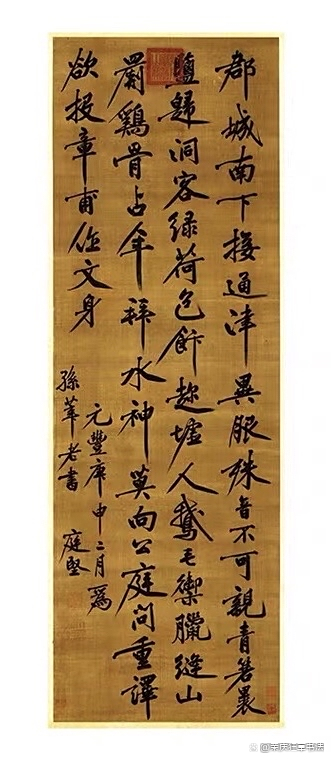 郡城南下接通津異服殊音不可親青箬裹
鹽歸洞客緑荷包飰趂墟人鵝毛禦臘縫山
罽鷄骨占年拜水神莫向公庭問重譯
欲投章甫作文身
元豐庚申二月爲
孫莘老書 庭堅